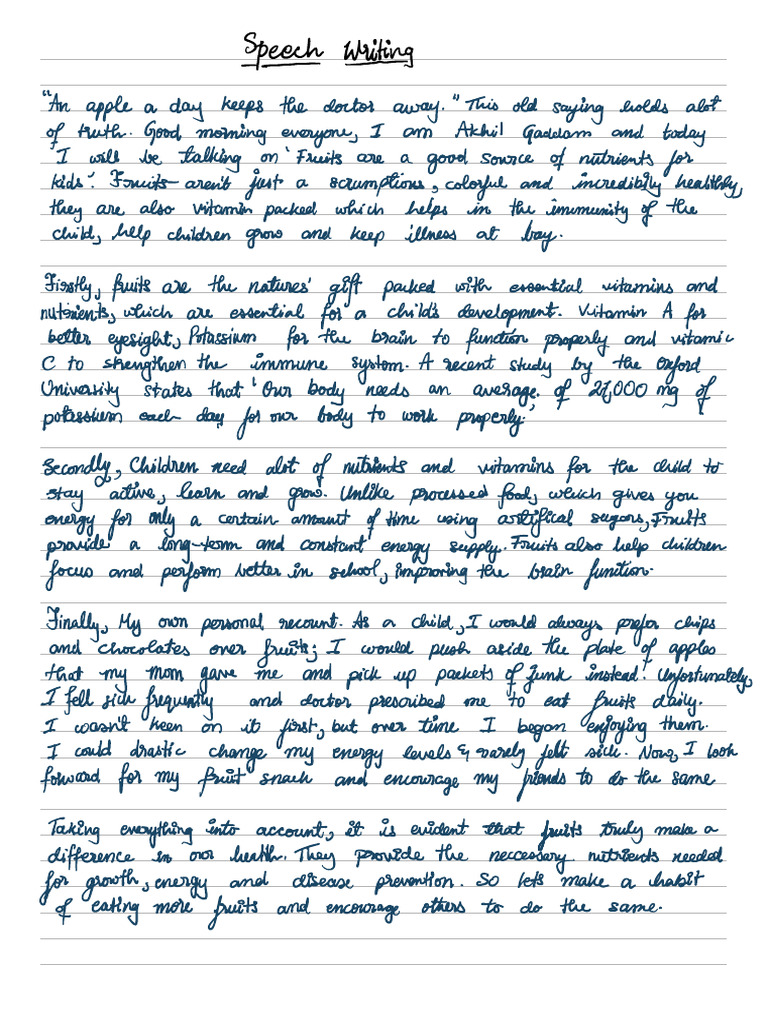 Speech Writing
"An apple a day keeps the doctor away." This old saying holds alot
of truth. Good morning everyone, I am Akhil Gaddam and today
I will be talking on 'Fruits are a good source of nutrients for
kids'. Fruits aren't just a scrumptions, colorful and incredibly healthly,
they are also vitamin packed which helps in the immunity of the
child, help children grow and keep illness at bay.
Firstly, fruits are the natures' gift packed with essential vitamins and
nutrients, which are essential for a child's development. Vitamin A for
better eyesight, Potassium for the brain to function properly and vitamic
C to strengthen the immune system. A recent study by the Oxford
University states that 'Our body needs an average of 27,000 mg of
potassium each day for our body to work properly.'
Secondly, Children need alot of nutrients and vitamins for the child to
stay active, learn and grow. Unlike processed food, which gives you
energy for only a certain amount of time using artifical sugars, Fruits
provide a long-term and constant energy supply. Fruits also help children
focus and perform better in school, improving the brain function.
Finally, My own personal recount. As a child, I would always prefer chips
and chocolates over fruits; I would push aside the plate of apples
that my mom gave me and pick up packets of junk instead! Unfortunately,
I fell sick frequently and doctor prescribed me to eat fruits daily.
I wasn't keen on it first, but over time I began enjoying them.
I could drastic change my energy levels & rarely felt sick. Now, I look
forward for my 'fruit' snack and encourage my friends to do the same
Taking everything into account, it is evident that fruits truly make a
difference in our health. They provide the neccessery nutrients needed
for growth, energy and disease prevention. So lets make a habit
of eating more fruits and encourage others to do the same.